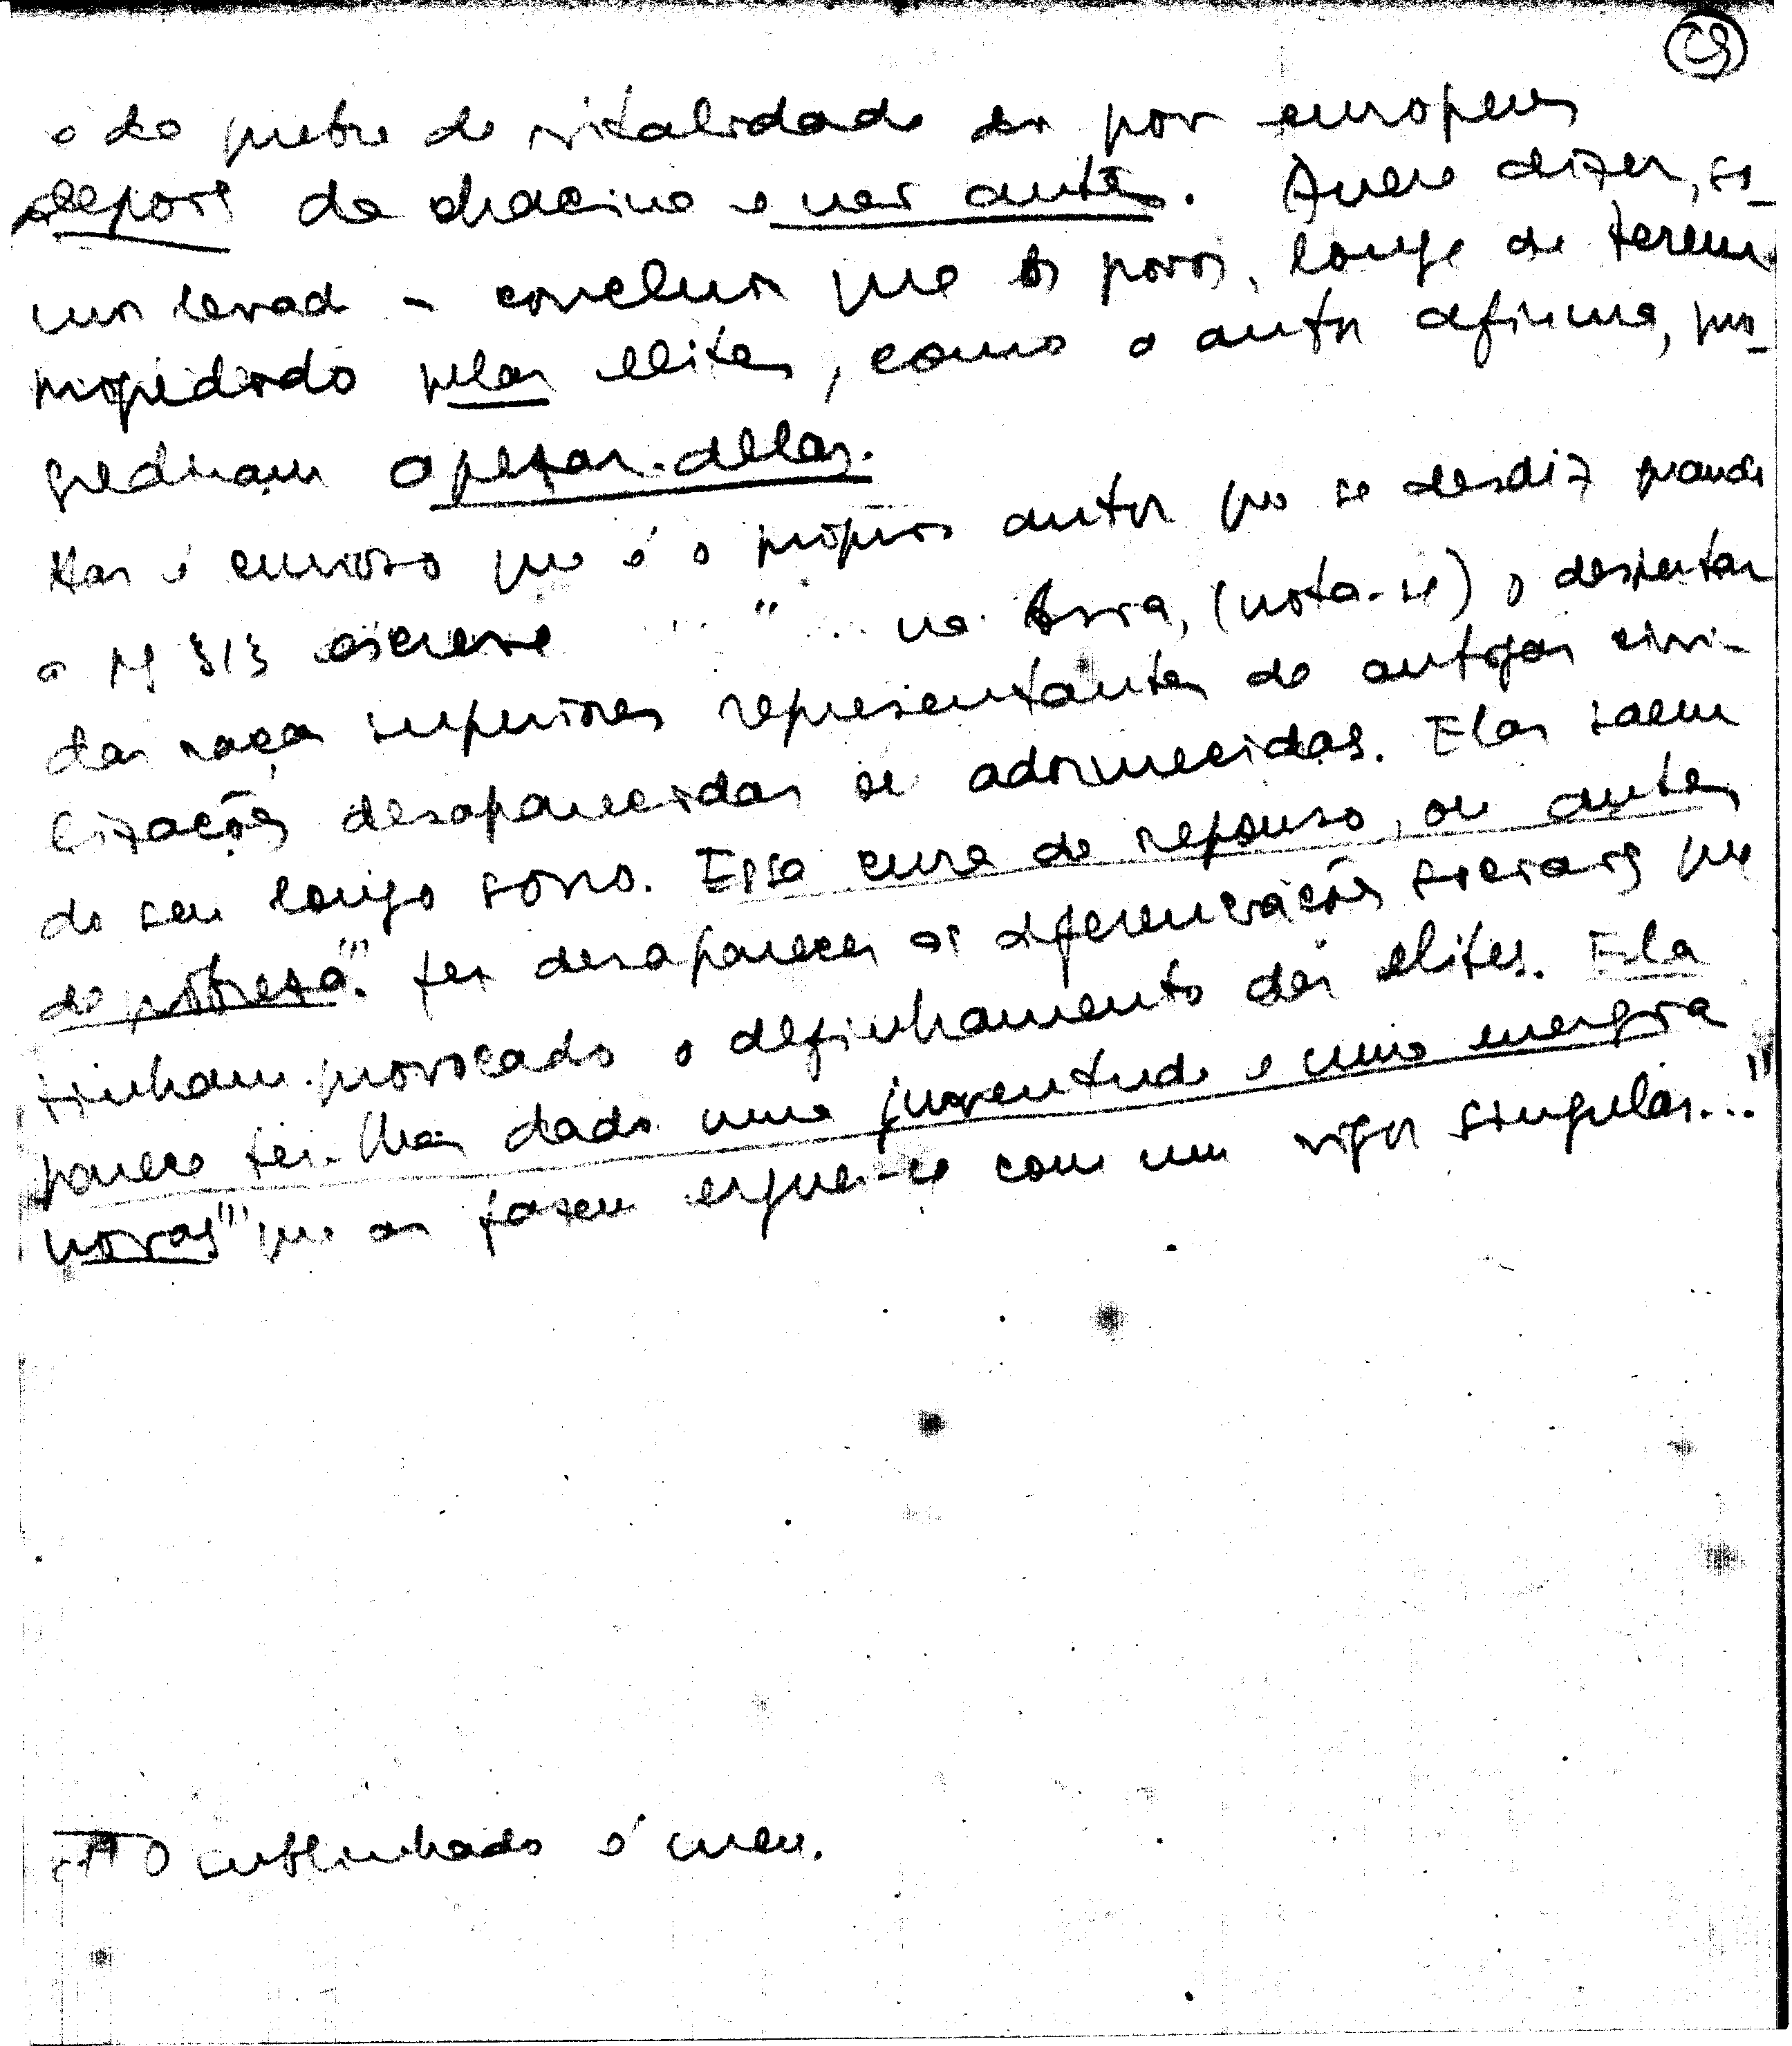 e da quebra de vitalidade dos povos europeus
depois da chacina e não antes. Quere dizer, so-
mos levados a concluir que os povos, longe de terem
propriedade pelas elites, como o autor afirma, pro-
grediram apezar-delas.
Mas é curioso que é o próprio autor que se desdiz quando
a pg 313 escreve "... na Asia, (nota-se) o despertar
das raças superiores representantes de antigas civi-
lizações desaparecidas ou adormecidas. Elas saem
do seu longo sono. Essa cura de repouso, ou antes
de pobreza (1) fez desaparecer as diferenciações sociais que
tinham provocado o definhamento das elites. Ela
parece ter-lhes dado uma juventude e uma energia
novas (1) que as fazem erguer-se com um vigor singular..."
O sublinhado é meu.